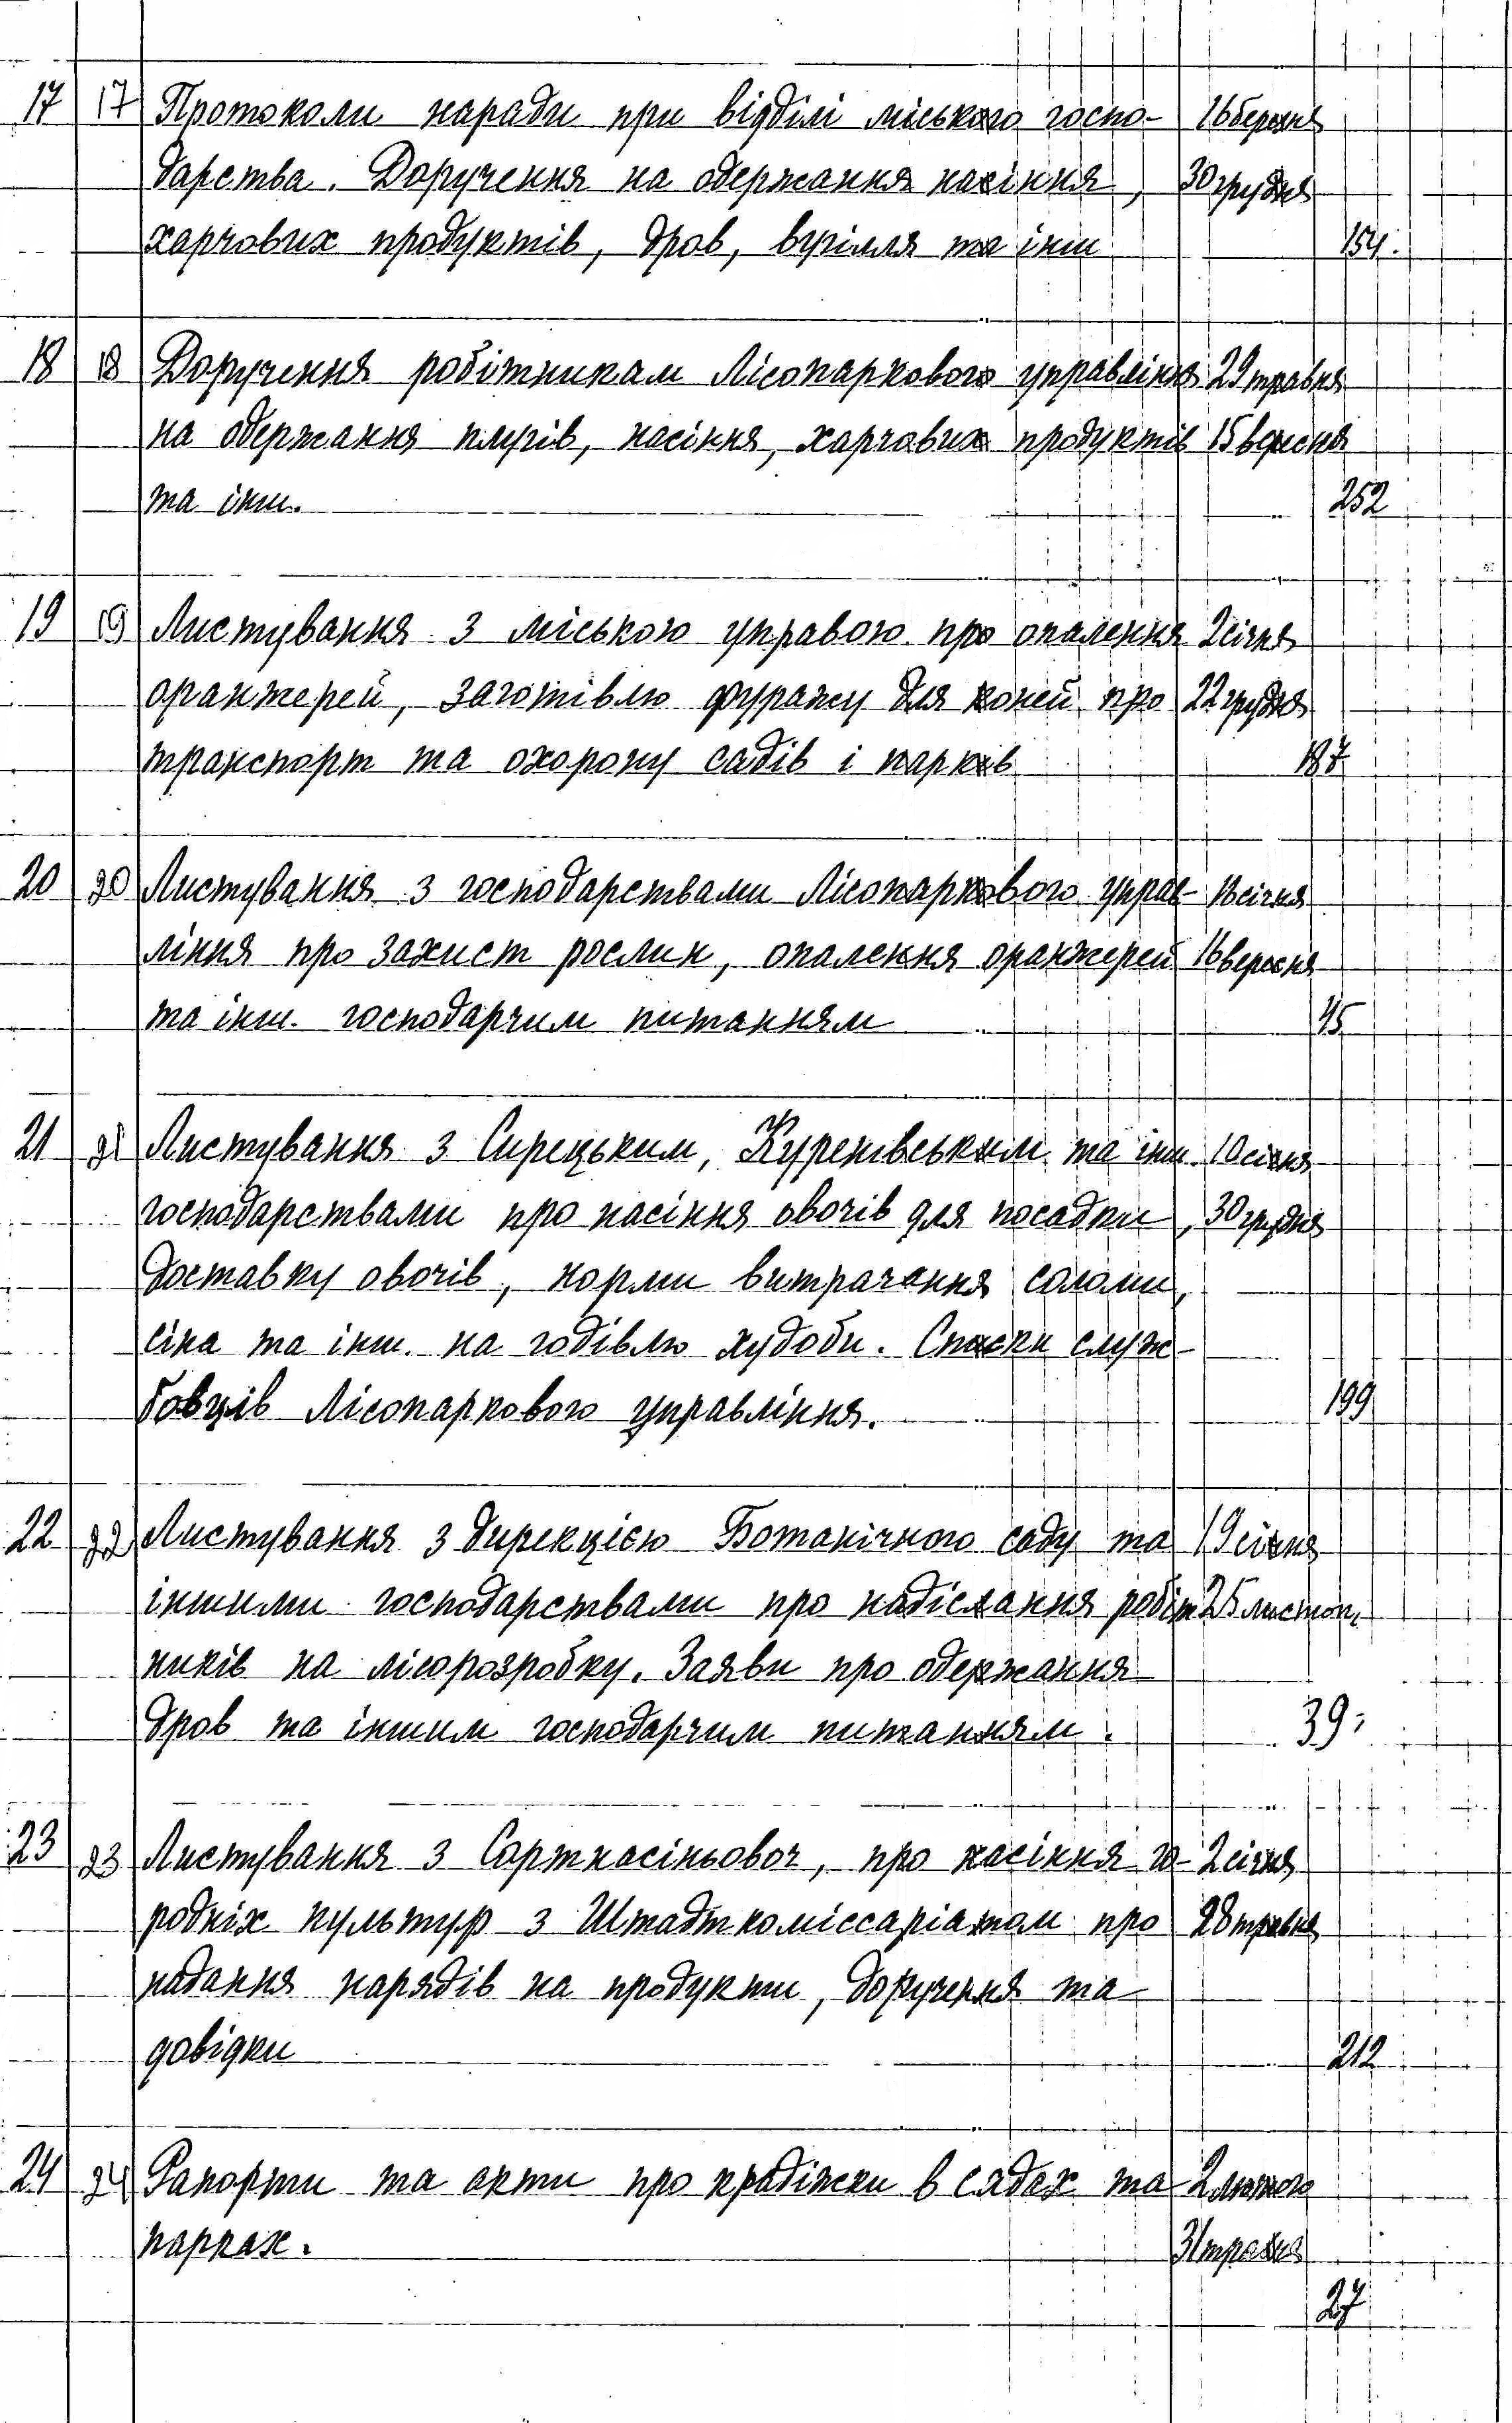 17 17 Протоколи наради при відділі міського госпо- 16 березня
дарства. Доручення на одержання насіння, 30 грудня
харчових продуктів, дров, вугілля та інш 154.
18 18 Доручення робітникам Лісопаркового управління 29 травня
на одержання плугів, насіння, харчових продуктів 15 вересня
та інш. 252
19 19 Листування з міською управою про опалення 2 січня
оранжерей, заготівлю фуражу для коней про 22 грудня
транспорт та охорону садів і парків 187
20 20 Листування з господарствами Лісопаркового управ- 13 січня
ління про захист рослин, опалення оранжерей 16 вересня
та інш. господарчим питанням 45
21 21 Листування з Сирецьким, Куренівським та інш. 10 січня
господарствами про насіння овочів для посадки, 30 грудня
доставку овочів, норми витрачання соломи,
сіна та інш. на годівлю худоби. Списки служ-
бовців Лісопаркового управління. 199
22 22 Листування з дирекцією Ботанічного саду та 19 січня
іншими господарствами про надіслання робіт 25 листоп.
ників на лісорозробку. Заяви про одержання
дров та іншим господарчим питанням. 39.
23 23 Листування з Сортнасіньовоч, про насіння го- 2 січня
родніх культур з Штадткоміссаріатом про 28 травня
надання нарядів на продукти, доручення та
довідки 212
24 24 Рапорти та акти про крадіжки в садах та 2 лютого
парках. 31 травня
27